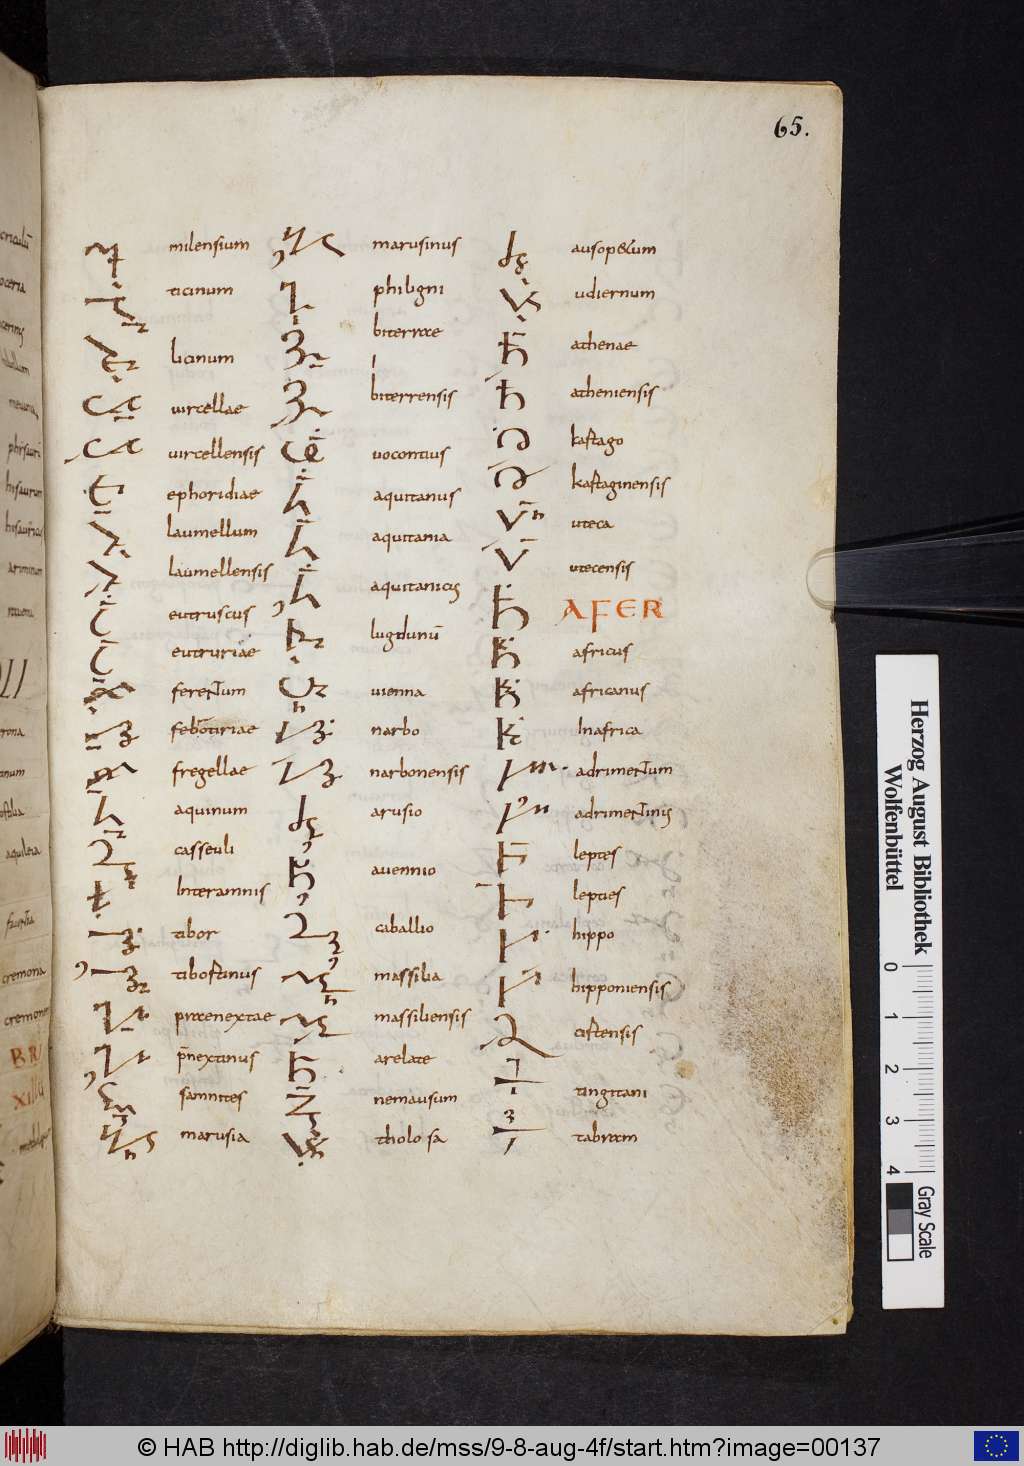 65.
milensium
ticinum
licinum
uircellae
uircellensis
ephoridiae
laumellum
laumellensis
eutruscus
eutruriae
ferentum
fregellae
aquinum
casseuli
Interamnis
tibor
tibortinus
prenextinus
samnites
marusia
marusinus
phibgni
biterrae
biterrensis
uocontius
aquitanus
aquitania
aquitanicus
lugdunū
uienna
narbo
narbonensis
arusio
auennio
caballio
massilia
massiliensis
arelate
nemausum
tholosa
ausop&um
udiernum
athenae
atheniensis
kartago
kartaginensis
uteca
utecensis
AFER
africus
africanus
Inafrica
adrimentum
adrimentinus
leptes
lepties
hippo
hipponiensis
cirtensis
tingitani
Herzog August Bibliothek
Wolfenbüttel
0 1 2 3 4
Gray Scale
© HAB http://diglib.hab.de/mss/9-8-aug-4f/start.htm?image=00137